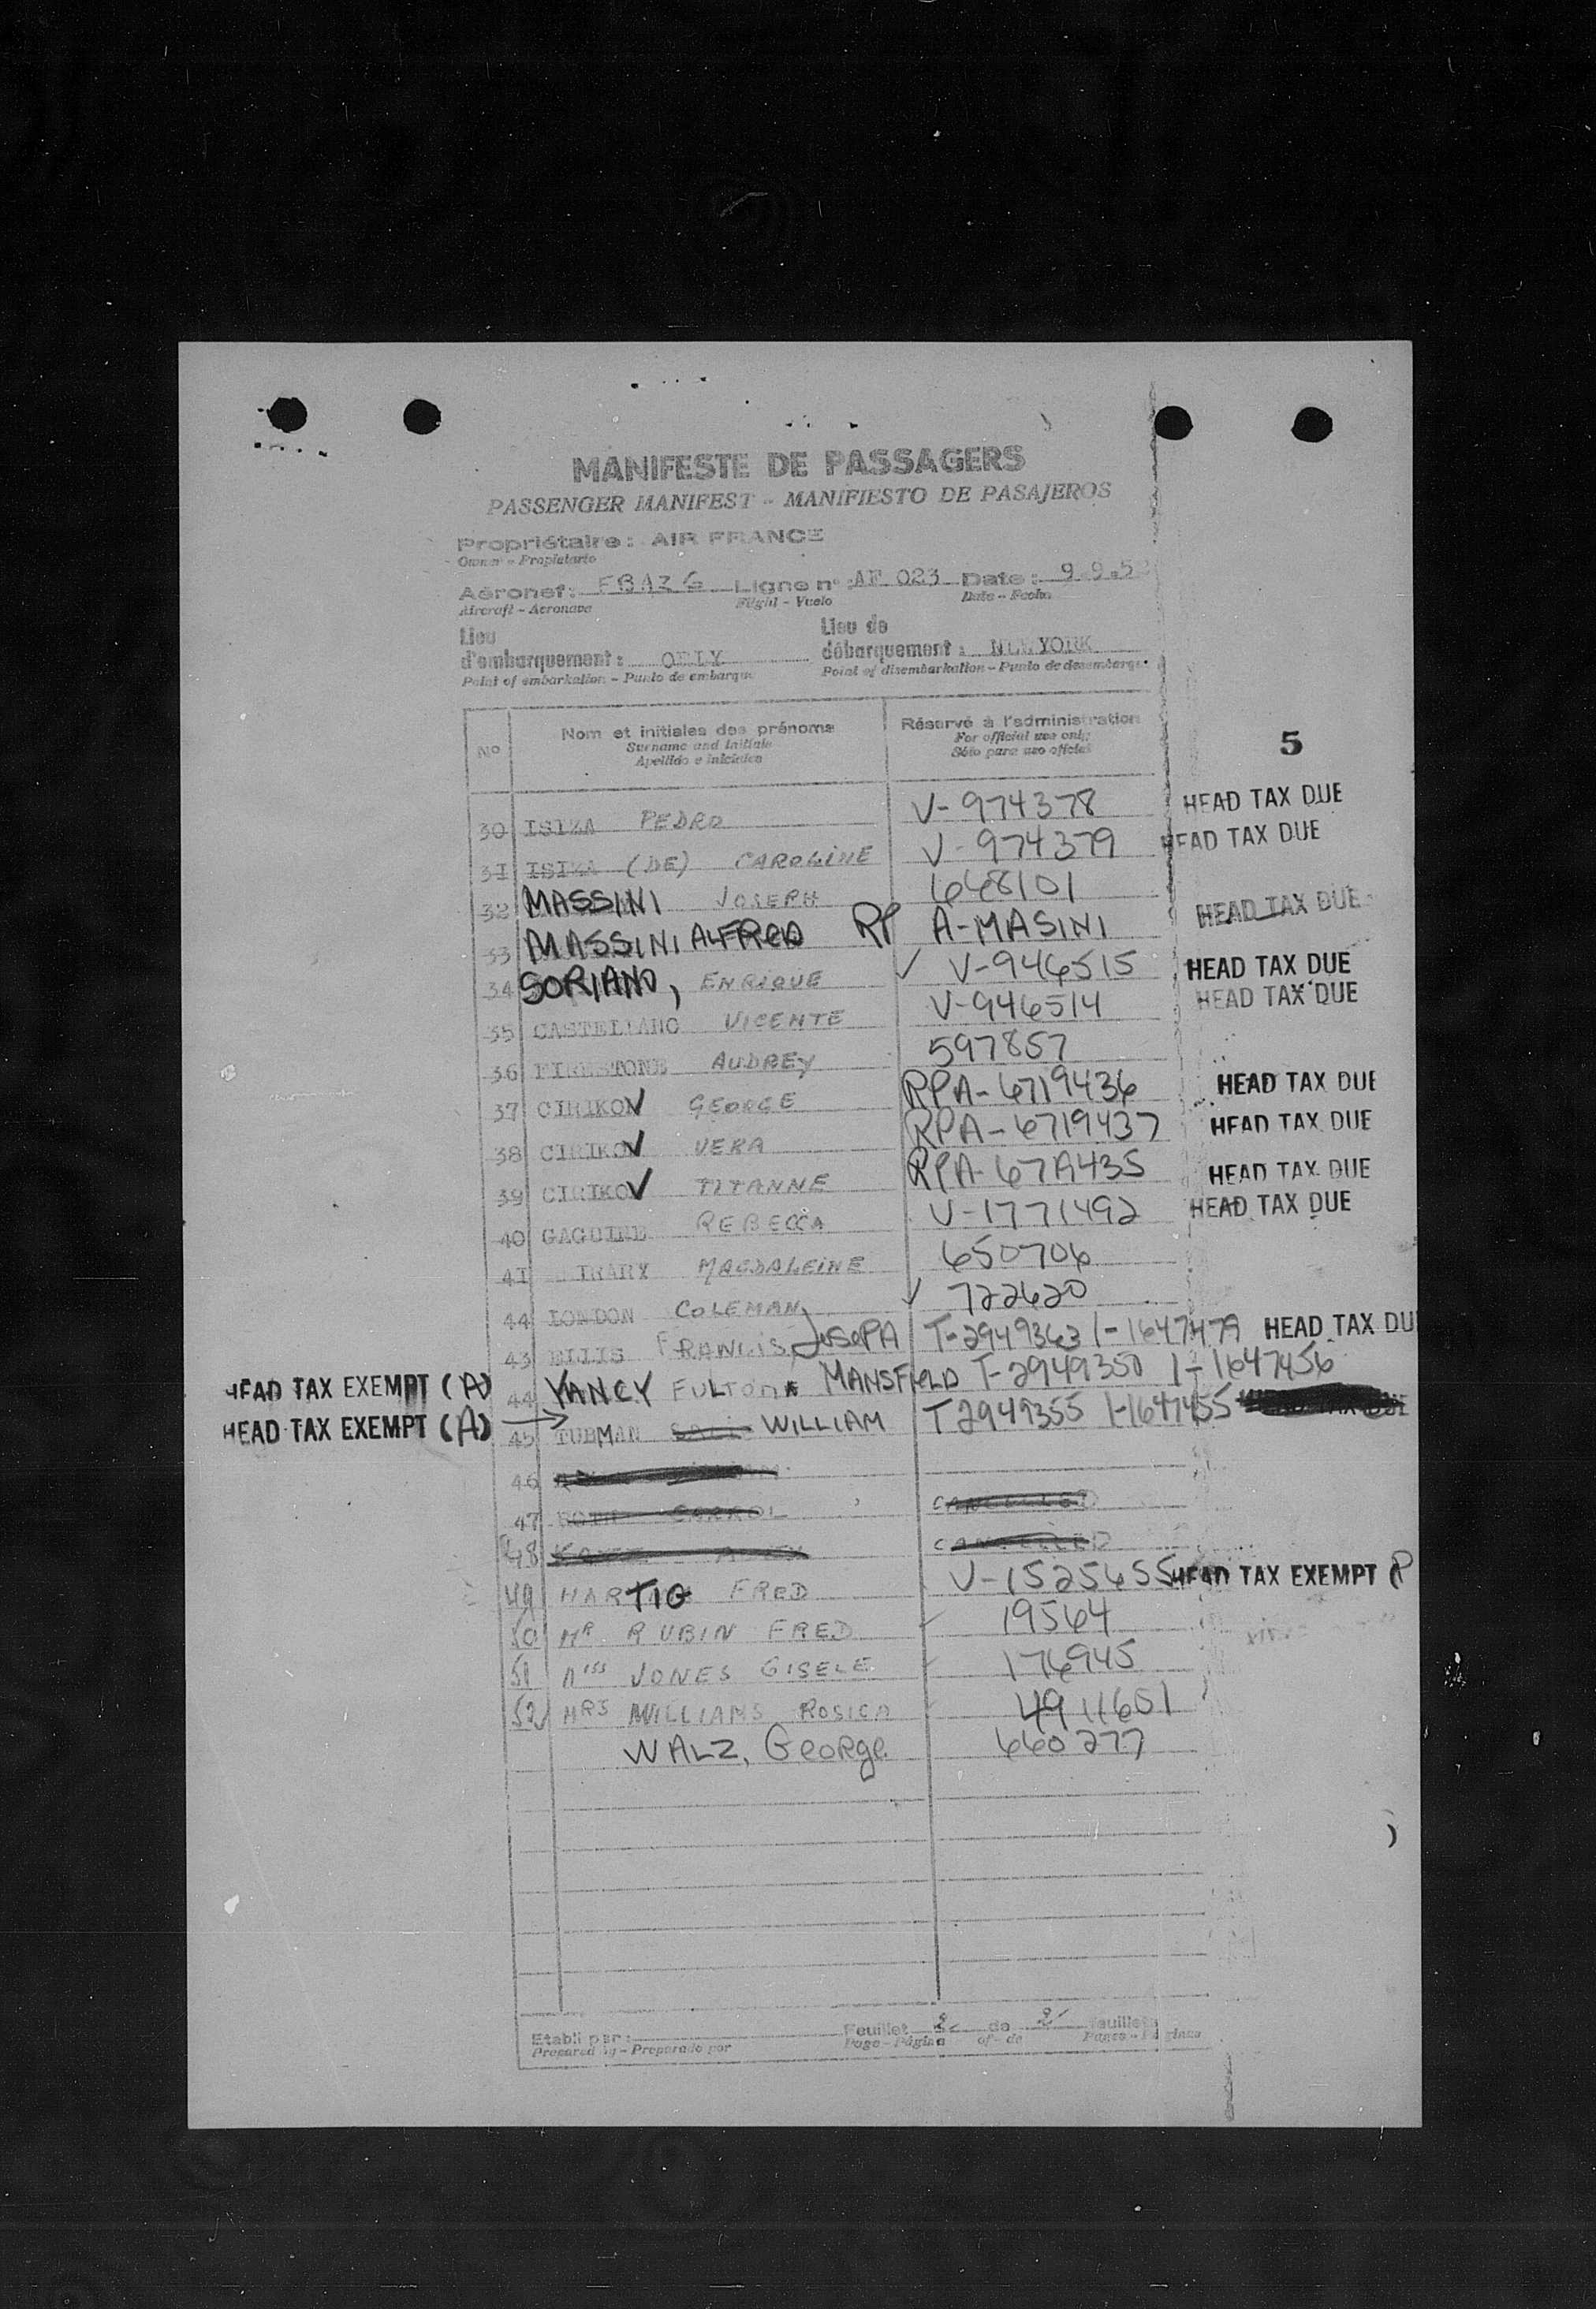 MANIFESTE DE PASSAGERS
PASSENGER MANIFEST - MANIFIESTO DE PASAJEROS
Propriétaire : AIR FRANCE
Owner - Propietario
Aéronef : FBAZG Ligne n° : AF 023 Date : 9.9.5
Aircraft - Aeronave Flight - Vuelo Date - Fecha
Lieu d'embarquement : ORLY Lieu de débarquement : NEW YORK
Point of embarkation - Punto de embarque Point of disembarkation - Punto de desembarque
N° Nom et initiales des prénoms Réservé à l'administration
Surname and initials For official use only
Apellido e iniciales Sólo para uso oficial
5
30 ISIZA PEDRO V-974378 HEAD TAX DUE
31 ISIZA (DE) CAROLINE V-974379 HEAD TAX DUE
32 MASSINI JOSEPH 648101
33 MASSINI ALFRED RP A-MASINI HEAD TAX DUE
34 SORIANO, ENRIQUE ✓ V-946515 HEAD TAX DUE
35 CASTELLANO VICENTE V-946514 HEAD TAX DUE
36 FIRESTONE AUDREY 597857
37 CIRIKOV GEORGE RPA-6719436 HEAD TAX DUE
38 CIRIKOV VERA RPA-6719437 HEAD TAX DUE
39 CIRIKOV TITANNE RPA-6719435 HEAD TAX DUE
40 GAGUINE REBECCA V-1771492 HEAD TAX DUE
41 MAGDALEINE 650706
44 LONDON COLEMAN ✓ 722620
43 ELLIS FRANCIS, JOSEPA T-2949363 1-1647479 HEAD TAX DU
HEAD TAX EXEMPT (A) 44 YANCY FULTON MANSFIELD T-2949350 1-1647456
HEAD TAX EXEMPT (A) → 45 TUBMAN WILLIAM T2949355 1-1647455 TAX DUE
46
47 CARROL CANCELLED
48 CANCELLED
49 HARTIG FRED V-1525655 HEAD TAX EXEMPT (P
50 MR RUBIN FRED 19564
51 MISS JONES GISELE 176945
52 MRS WILLIAMS ROSICA 4911601
WALZ, George 660277
Etabli par : Feuillet 2 de 2 feuillets
Prepared by - Preparado por Page - Página of - de Pages - Páginas